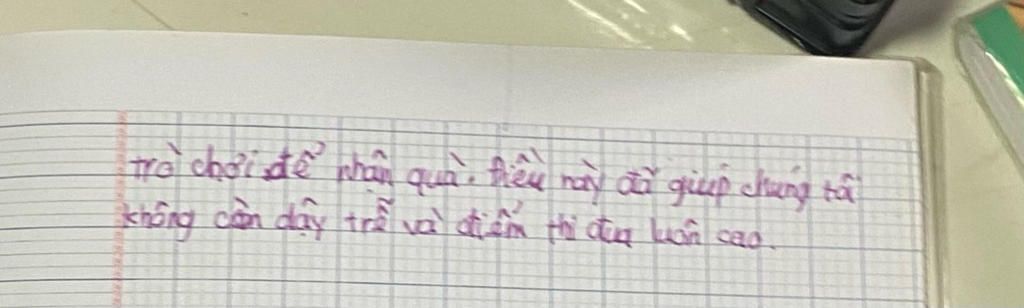 trò chơi để nhận quà. Điều này đã giúp chúng tôi
không còn dậy trễ và điểm thi đua luôn cao.